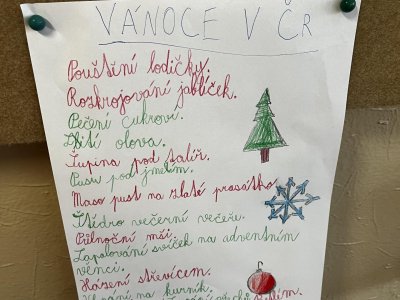 VÁNOCE V ČR
Pouštění lodičky.
Rozkrojování jablíček.
Pečení cukroví.
Lití olova.
Šupina pod talíř.
Pusu pod jmelím.
Maso půst na zlaté prasátko
Štědro večerní večeřu.
Půlnoční mši.
Zapalování svíček na adventním
věnci.
Házení střevícem.
na kurník.